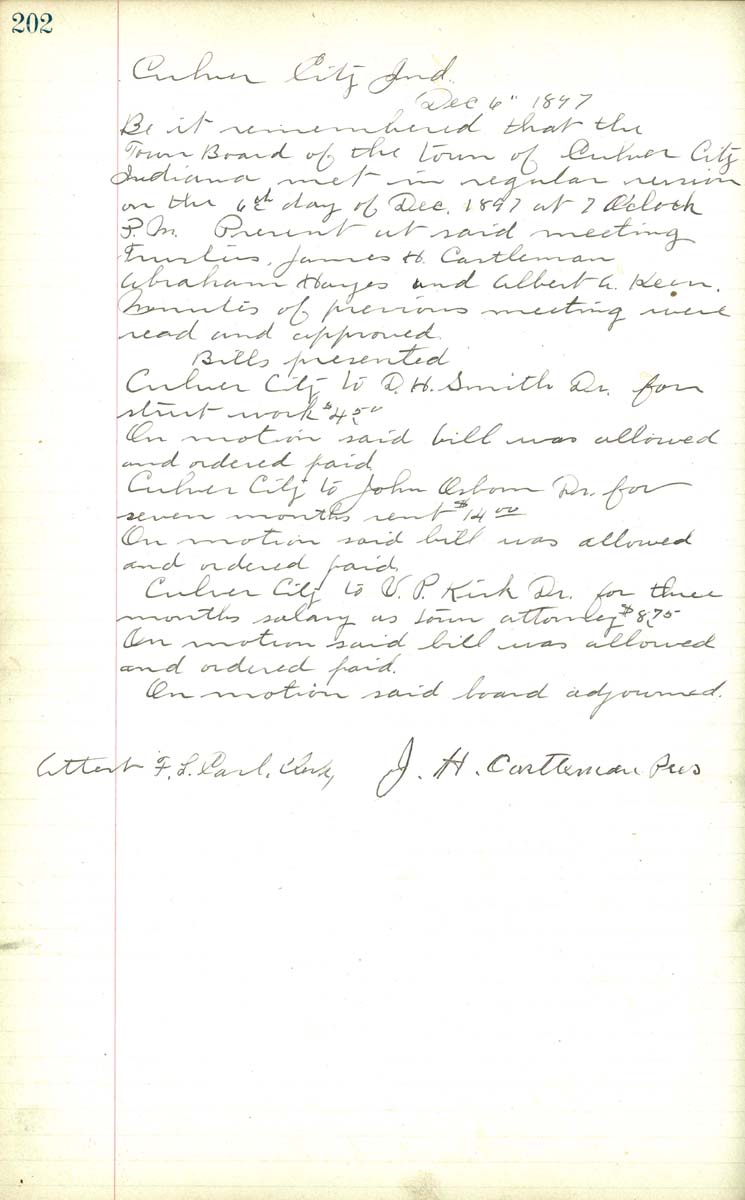 202
Culver City Ind.
Dec 6" 1897
Be it remembered that the
Town Board of the town of Culver City
Indiana met in regular session
on the 6th day of Dec. 1897 at 7 Oclock
P.M. Present at said meeting
Trustees, James H. Castleman
Abraham Hayes and Albert A. Keen.
Minutes of previous meeting were
read and approved.
Bills presented
Culver City to D. H. Smith Dr. for
street work $4.50
On motion said bill was allowed
and ordered paid
Culver City to John Osborn Dr. for
seven months rent $14 00
On motion said bill was allowed
and ordered paid.
Culver City to U. P. Kirk Dr. for three
months salary as town attorney $8.75
On motion said bill was allowed
and ordered paid.
On motion said board adjourned.
Attest F. L. Clerk, J. H. Castleman Pres